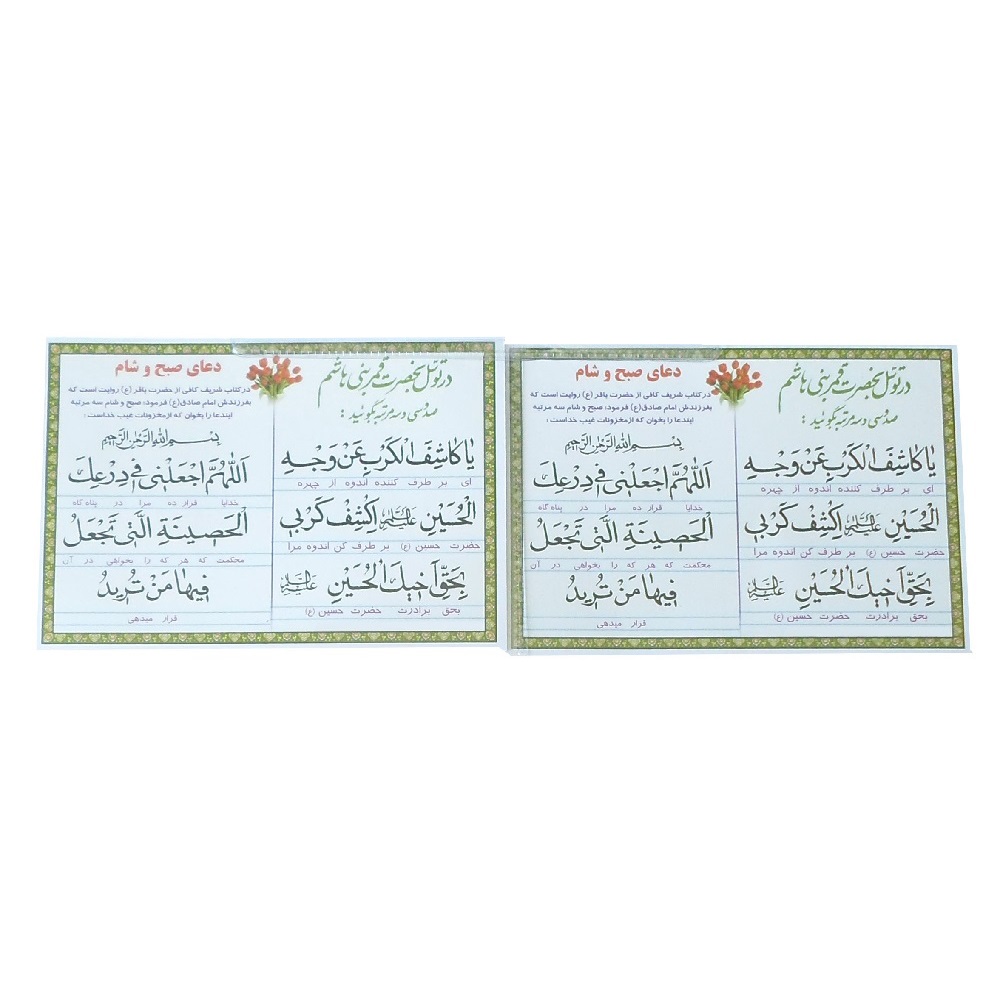 در توسل بحضرت قمر بنی هاشم
صد و سی و سه مرتبه بگوئید :
یا کاشِفَ الْکَرْبِ عَنْ وَجْهِ
ای بر طرف کننده اندوه از چهره
الْحُسَیْنِ عَلَیْهِ السَّلام اِکْشِفْ کَرْبی
حضرت حسین (ع) بر طرف کن اندوه مرا
بِحَقِّ اَخیکَ الْحُسَیْنِ عَلَیْهِ السَّلام
بحق برادرت حضرت حسین (ع)
دعای صبح و شام
در کتاب شریف کافی از حضرت باقر (ع) روایت است که
بفرزندش امام صادق(ع) فرمود: صبح و شام سه مرتبه
ایندعا را بخوان که از مخزونات غیب خداست:
بِسْمِ اللهِ الرَّحْمنِ الرَّحیمِ
اَللّهُمَّ اجْعَلْنی فی دِرْعِکَ
خدایا قرار ده مرا در پناه گاه
الْحَصینَةِ الَّتی تَجْعَلُ
محکمت که هر که را بخواهی در آن
فیها مَنْ تُریدُ
قرار میدهی
در توسل بحضرت قمر بنی هاشم
صد و سی و سه مرتبه بگوئید :
یا کاشِفَ الْکَرْبِ عَنْ وَجْهِ
ای بر طرف کننده اندوه از چهره
الْحُسَیْنِ عَلَیْهِ السَّلام اِکْشِفْ کَرْبی
حضرت حسین (ع) بر طرف کن اندوه مرا
بِحَقِّ اَخیکَ الْحُسَیْنِ عَلَیْهِ السَّلام
بحق برادرت حضرت حسین (ع)
دعای صبح و شام
در کتاب شریف کافی از حضرت باقر (ع) روایت است که
بفرزندش امام صادق(ع) فرمود: صبح و شام سه مرتبه
ایندعا را بخوان که از مخزونات غیب خداست:
بِسْمِ اللهِ الرَّحْمنِ الرَّحیمِ
اَللّهُمَّ اجْعَلْنی فی دِرْعِکَ
خدایا قرار ده مرا در پناه گاه
الْحَصینَةِ الَّتی تَجْعَلُ
محکمت که هر که را بخواهی در آن
فیها مَنْ تُریدُ
قرار میدهی